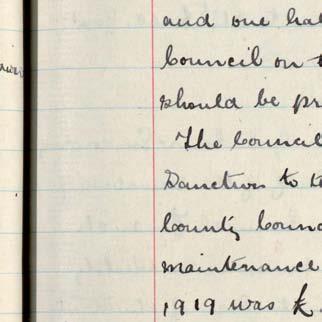 and one hal
Council on t
should be pr
The Council
Sanction to t
County Counc
maintenance
1919 was